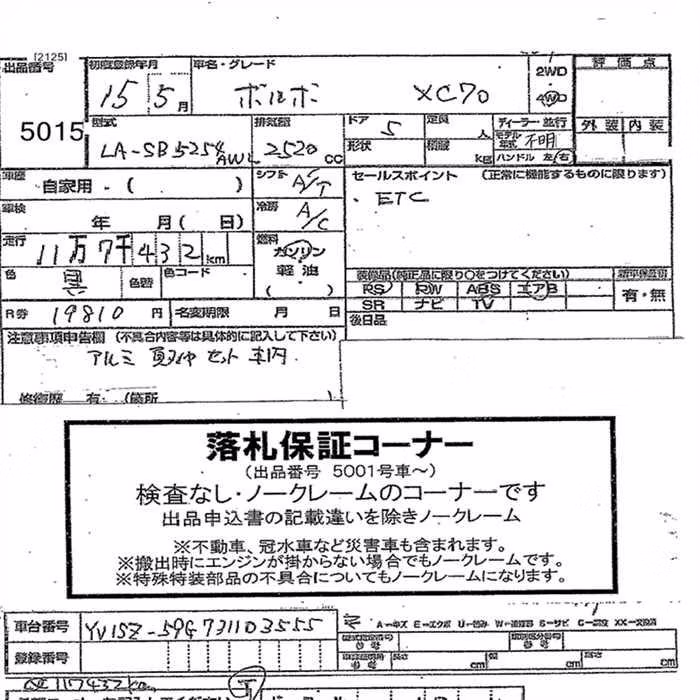 [2125]
出品番号 初度登録年月 車名・グレード 評価点
5015 15 5月 ボルボ XC70 2WD 4WD
型式 排気量 ドア 定員 ディーラー・並行 外装 内装
LA-SB5254AWL 2520 CC 5 人 モデル年式 不明
形状 積載 kg ハンドル 左・右
車歴 自家用・( ) シフト A/T セールスポイント (正常に機能するものに限ります)
車検 年 月( 日) 冷房 A/C ・ETC
走行 11万7千432km 燃料 ガソリン
軽油
( )
色 黒 色替 色コード 装備品(純正品に限り○をつけてください)
PS PW ABS エアB 有・無
SR ナビ TV
R券 19810円 名変期限 月 日 後日品
注意事項申告欄 (不具合内容等は具体的に記入して下さい)
アルミ 夏タイヤ セット 車内
修復歴 有 (箇所 )
落札保証コーナー
(出品番号 5001号車～)
検査なし・ノークレームのコーナーです
出品申込書の記載違いを除きノークレーム
※不動車、冠水車など災害車も含まれます。
※搬出時にエンジンが掛からない場合でもノークレームです。
※特殊特装部品の不具合についてもノークレームになります。
車台番号 YV1SZ-59G731103555 A-キズ E-エクボ U-凹み S-サビ
登録番号 長さ cm 幅 cm 高さ cm
117432km